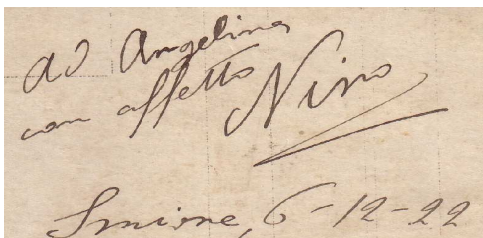 Ad Angelina
con affetto Nino
Smirne, 6-12-22